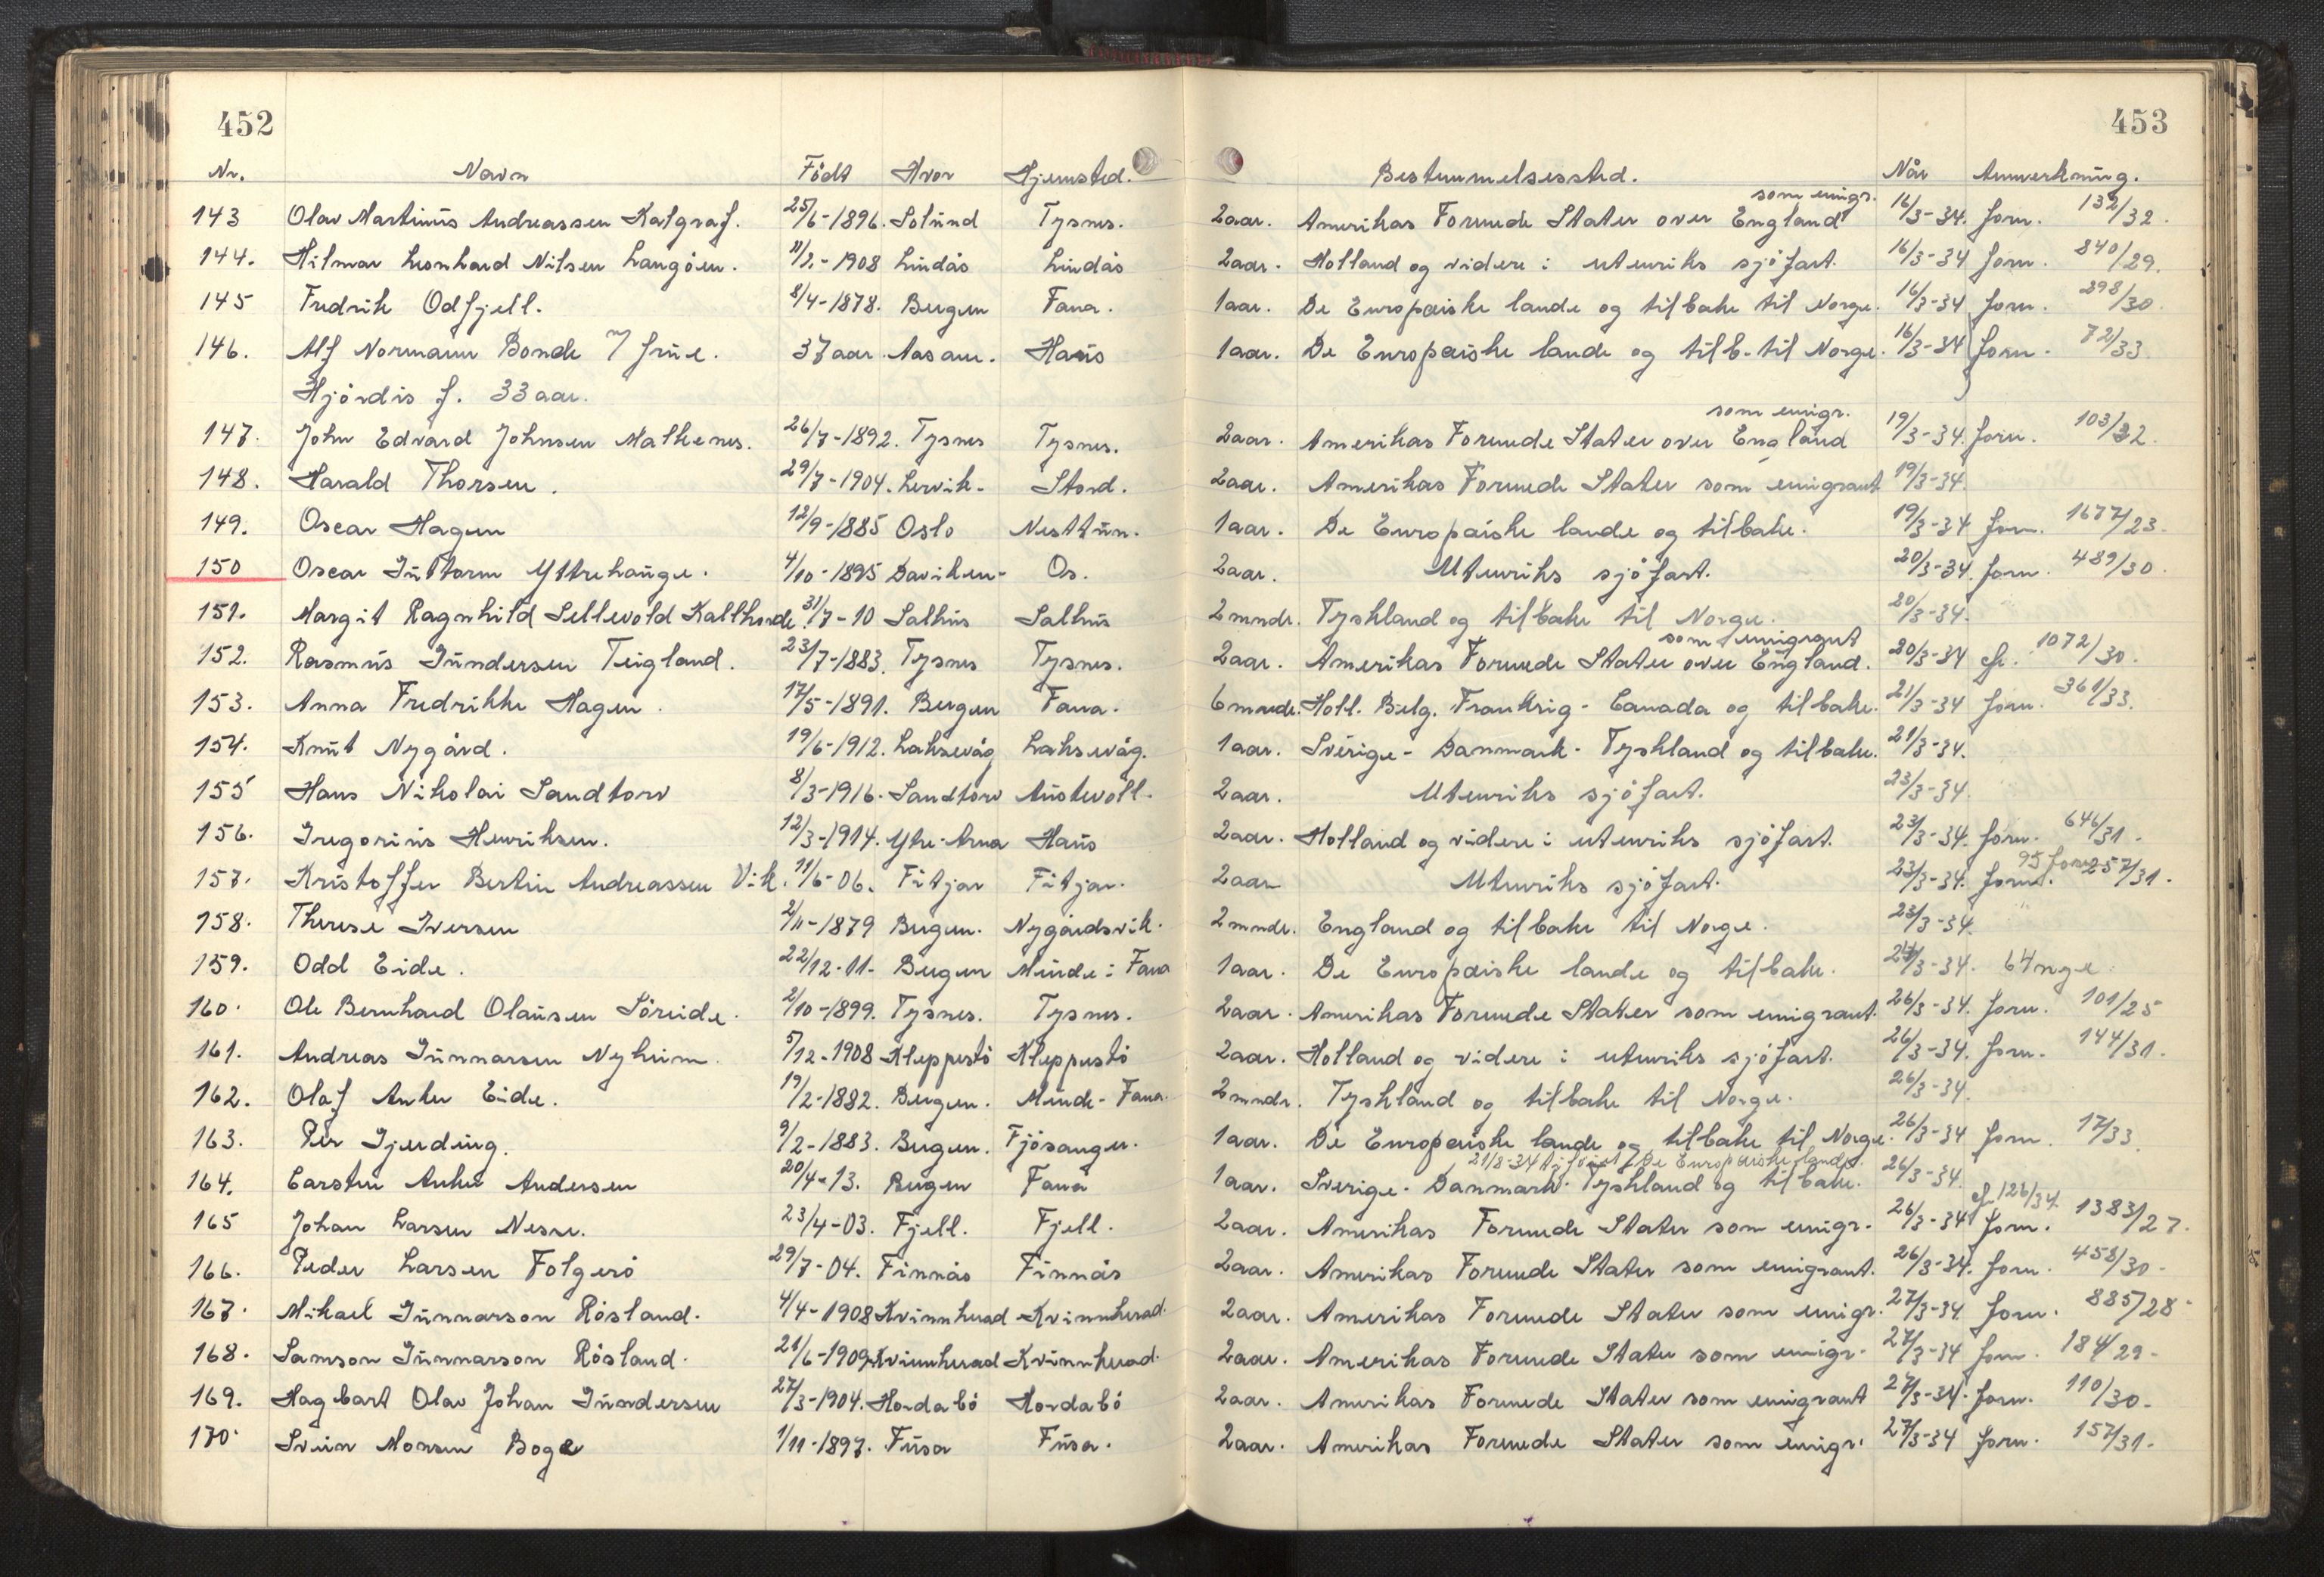 452
453
Nr. Navn Födt Hvor Hjemsted. Bestemmelsessted. Når Anmerkning.
som emigr.
143 Olav Martinus Andreassen Kalgraf. 25/6-1896. Solund Tysnes. 2 aar. Amerikas Forenede Stater over England 16/3-34. forn. 132/32.
144. Hilmar Leonhard Nilsen Langöen. 11/2-1908 Lindås Lindås 2 aar. Holland og videre i utenriks sjöfart. 16/3-34 forn. 840/29.
145 Fredrik Odfjell. 8/4-1878. Bergen Fana. 1 aar. De Europæiske lande og tilbake til Norge. 16/3-34 forn. 298/30
146. Alf Normann Bonde m/ frue. 37 aar. Aasane. Haus 1 aar. De Europæiske lande og tilb. til Norge. 16/3-34 forn. 72/33
Hjördis f. 33 aar.
som emigr.
147. John Edvard Johnsen Malkenes. 26/7-1892. Tysnes Tysnes. 2 aar. Amerikas Forenede Stater over England 19/3-34. forn. 103/32.
148. Harald Thorsen. 29/7-1904. Lervik. Stord. 2 aar. Amerikas Forenede Stater som emigrant 19/3-34.
149. Oscar Hagen 12/9-1885 Oslo Nesttun. 1 aar. De Europæiske lande og tilbake. 19/3-34 forn. 1677/23.
150 Oscar Guttorm Yttrehauge. 4/10-1895 Daviken- Os. 2 aar. Utenriks sjöfart. 20/3-34. forn. 489/30.
151. Margit Ragnhild Sellevold Kalthovde. 31/7-10 Salhus Salhus 2 mndr. Tyskland og tilbake til Norge. 20/3-34.
som emigrant
152. Rasmus Gundersen Teigland. 23/7-1883. Tysnes Tysnes. 2 aar. Amerikas Forenede Stater over England. 20/3-34 cfr. 1072/30.
153. Anna Fredrikke Hagen. 17/5-1891. Bergen Fana. 6 mnde. Holl. Belg. Frankrig - Canada og tilbake. 21/3-34 forn. 361/33.
154. Knut Nygård. 19/6-1912. Laksevåg Laksevåg. 1 aar. Sverige - Danmark - Tyskland og tilbake. 21/3-34.
155 Hans Nikolai Sandtorv 8/3-1916. Sandtorv Austevoll. 2 aar. Utenriks sjöfart. 23/3-34.
156. Gregorius Henriksen. 12/3-1914. Ytre-Arna Haus 2 aar. Holland og videre i utenriks sjöfart. 23/3-34. forn. 646/31.
157. Kristoffer Bertin Andreassen Vik. 11/6-06. Fitjar Fitjar. 2 aar Utenriks sjöfart. 23/3-34. forn. 257/31.
158. Therese Iversen 2/11-1879 Bergen. Nygårdsvik. 2 mndr. England og tilbake til Norge. 23/3-34.
159. Odd Eide. 22/12-11- Bergen Minde i Fana 1 aar. De Europæiske lande og tilbake. 24/3-34. 64 nge
160. Ole Bernhard Olausen Söreide. 2/10-1899. Tysnes. Tysnes. 2 aar. Amerikas Forenede Stater som emigrant. 26/3-34. forn. 101/25
161. Andreas Gunnarsen Nyheim. 5/12-1908 Kleppestö Kleppestö 2 aar. Holland og videre i utenriks sjöfart. 26/3-34. forn. 144/31.
162. Olaf Anker Eide. 19/2-1882. Bergen. Minde - Fana. 2 mndr. Tyskland og tilbake til Norge. 26/3-34.
163. Per Gjerding. 9/2-1883. Bergen. Fjösanger. 1 aar. De Europæiske lande og tilbake til Norge. 26/3-34 forn. 17/33
21/8-34 tilföiet De Europæiske lande.
164. Carsten Anker Andersen 20/4-13. Bergen Fana 1 aar. Sverige - Danmark - Tyskland og tilbake. 26/3-34.
cf 126/34
165 Johan Larsen Nesse. 23/4-03. Fjell. Fjell. 2 aar. Amerikas Forenede Stater som emigr. 26/3-34 forn. 1383/27.
166. Peder Larsen Folgerö 29/7-04. Finnås Finnås 2 aar. Amerikas Forenede Stater som emigrant. 26/3-34. forn. 458/30.
167. Mikael Gunnarson Rösland. 4/4-1908 Kvinnherad Kvinnherad. 2 aar. Amerikas Forenede Stater som emigr. 27/3-34 forn. 885/28
168. Samson Gunnarson Rösland. 21/6-1909 Kvinnherad Kvinnherad. 2 aar. Amerikas Forenede Stater som emigr. 27/3-34 forn. 184/29
169. Hagbart Olav Johan Gundersen 27/3-1904. Hordabö Hordabö 2 aar. Amerikas Forenede Stater som emigrant 27/3-34. forn. 110/30.
170. Svein Monsen Boge 1/11-1897. Fusa Fusa. 2 aar. Amerikas Forenede Stater som emigr. 27/3-34 forn. 157/31.